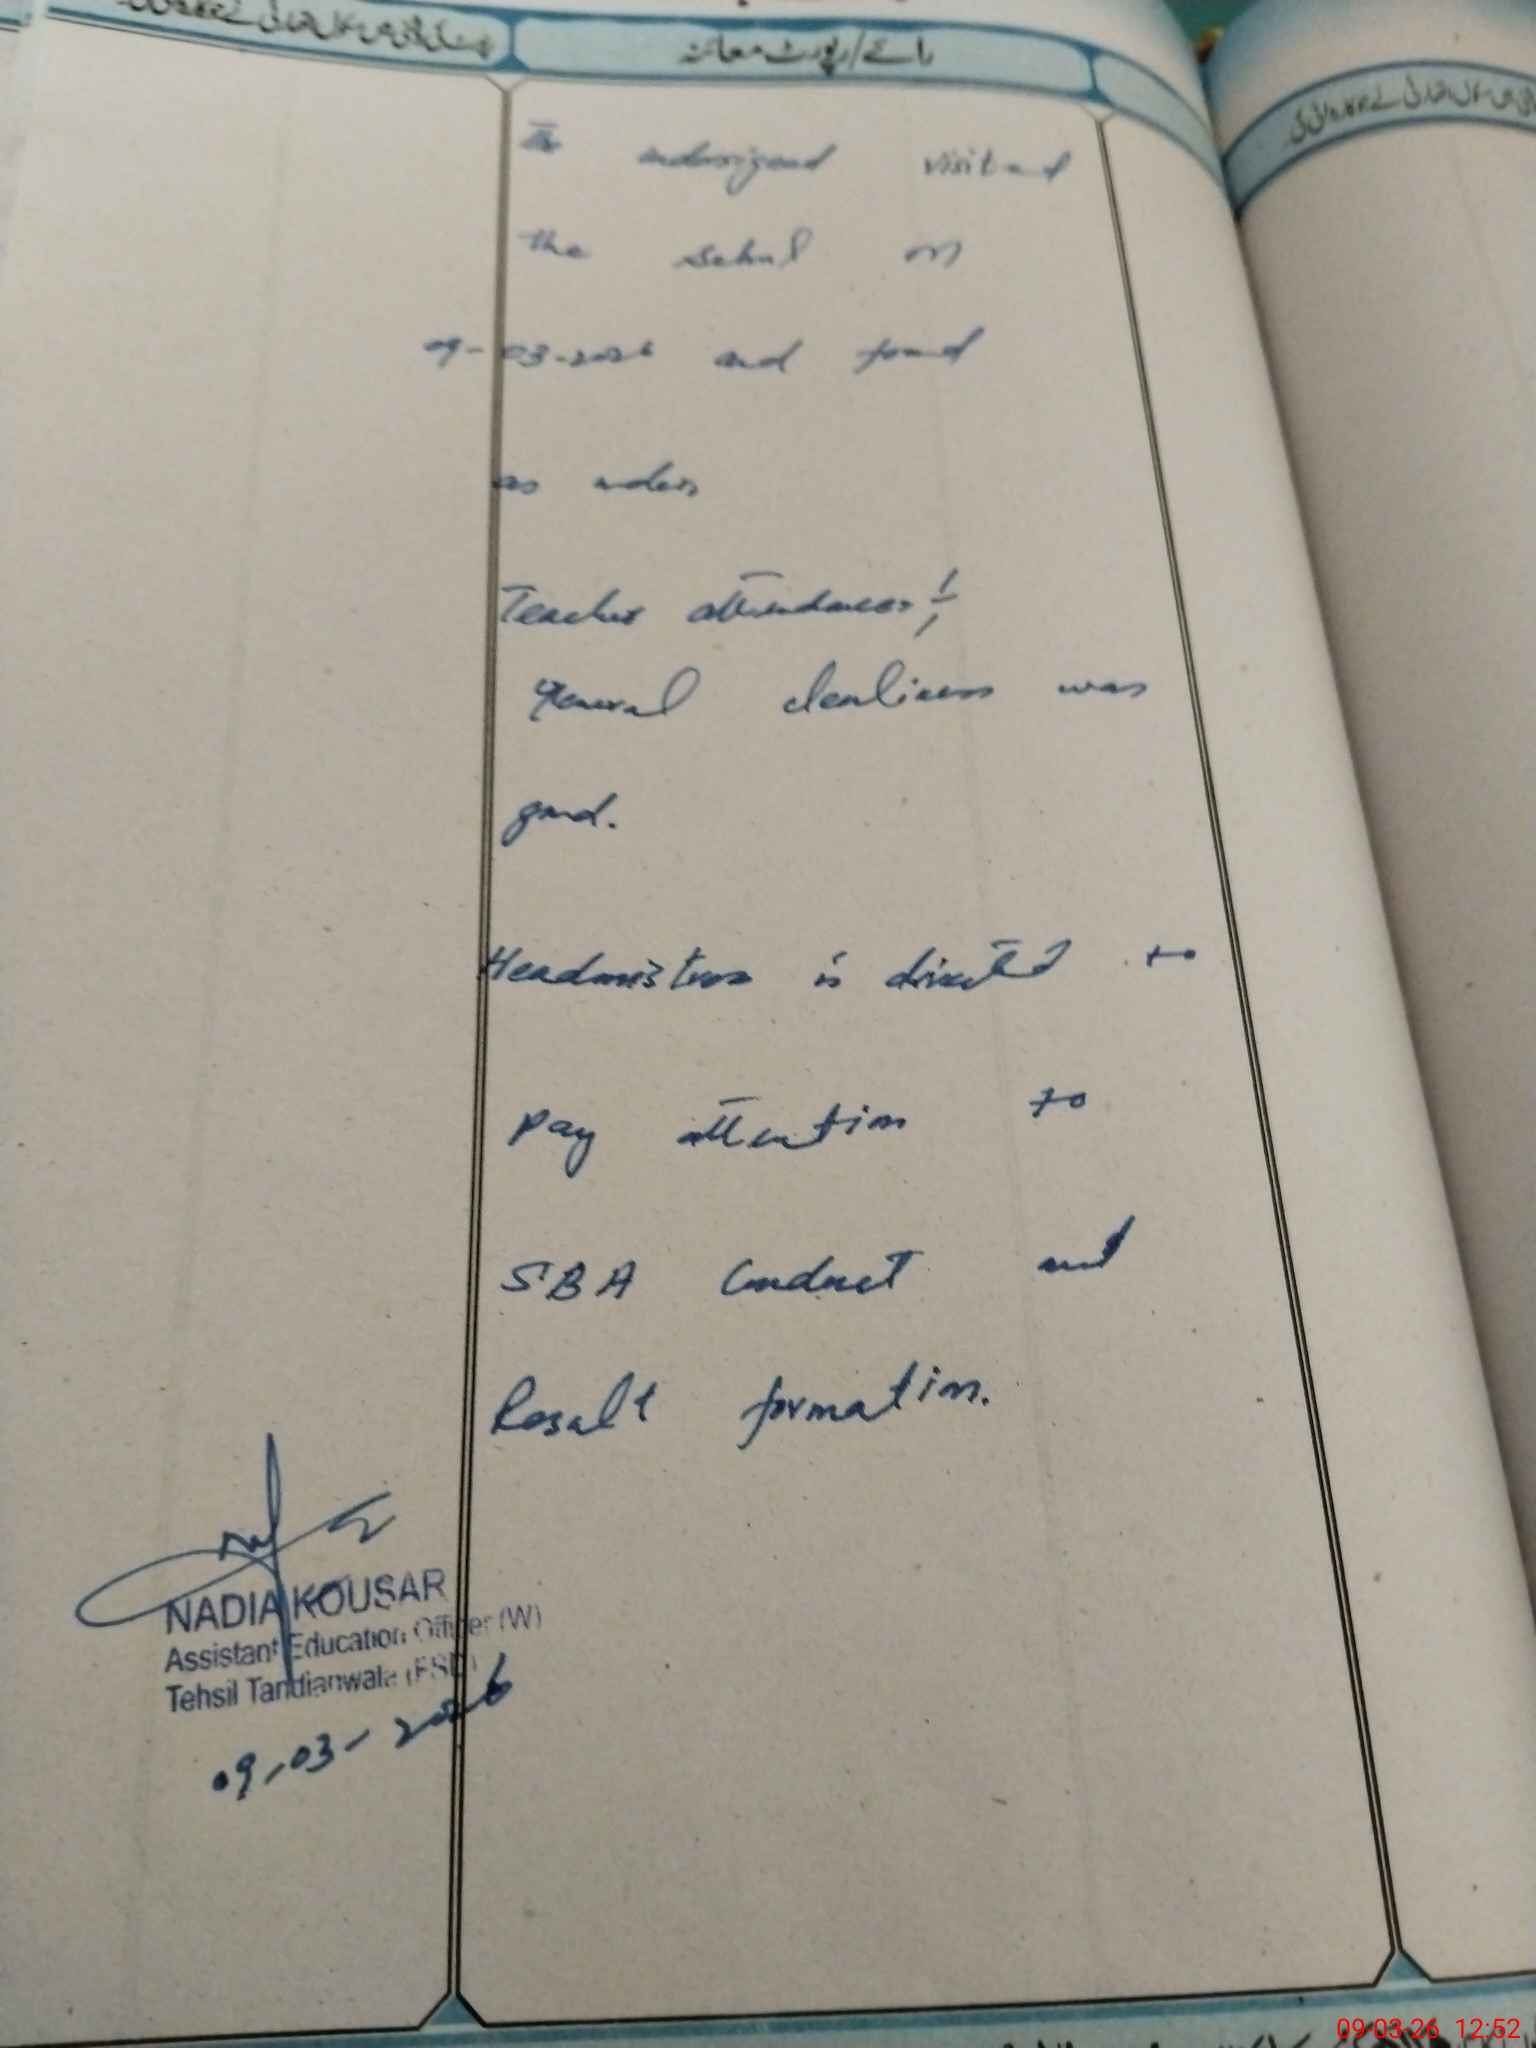 رائے/رپورٹ معائنہ
The undersigned visited
the school on
09-03-2026 and found
as under
Teacher attendances 1/1
General cleanliness was
good.
Headmistress is directed to
pay attention to
SBA Conduct and
Result formation.
NADIA KOUSAR
Assistant Education Officer (W)
Tehsil Tandianwala (FSD)
09-03-2026
09-03-26 12:52